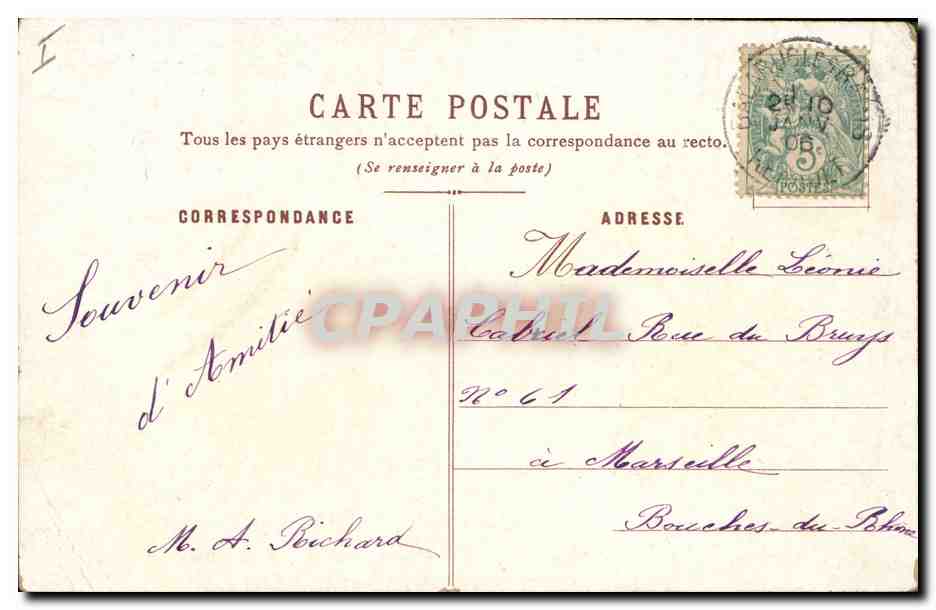 I
CARTE POSTALE
Tous les pays étrangers n'acceptent pas la correspondance au recto.
(Se renseigner à la poste)
CORRESPONDANCE
Souvenir
d'Amitié
M. A. Richard
ADRESSE
Mademoiselle Léonie
Gabriel Rue du Bruys
N° 61
à Marseille
Bouches-du-Rhône
CPAPHIL
JANV
06
HERAULT
5c
POSTES